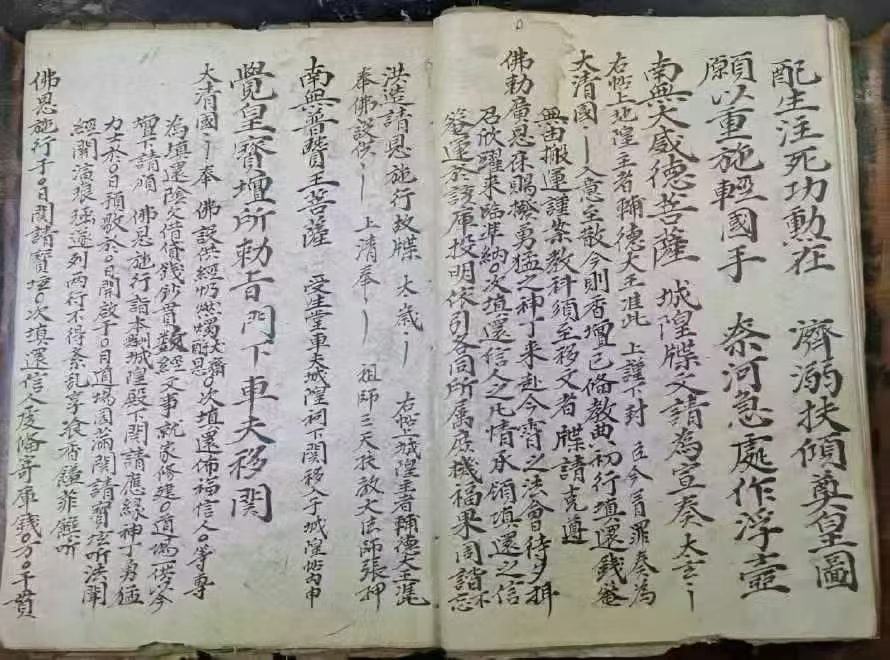 配生注死功勳在　濟溺扶傾奠皇圖
願以重施輕國手　奈河急處作浮壺
南無大威德菩薩　城隍牒文請為宣奏　大玄
右帖上城隍主者輔德大王准此　上謹下封　臣今首罪奏為
大清國　入意至散今則香壇已俻教典初行填還錢
無由搬運謹案教科須至移文者　牒請克遵
佛勅廣恩保賜撥勇猛之神丁来赴今宵之法會待
召欣躍来臨准納○次填還信人之凡情承領填還之信
運于該庫投明依引各同所属原機福果周諧不忘
洪造請恩施行故牒　太歲　右帖城隍主者輔德大王准
奉佛設供　上清奉　祖師三天扶教大法師張押
南無普賢王菩薩　受生堂車夫城隍祠下関移入于城隍帖內申
覺皇寶壇所勅旨門下車夫移関
大清國　奉佛設供經　燃燭大齋○次填還佈福信人○等專
為填還陰欠借貸錢鈔冒　經文事就家修建○道場一供以今
壇下請頒　佛恩施行詣本　城隍殿下関請應緣神丁勇猛
力士於○日預敬於○日開啟于○日道場圓滿関請寶壇听法聞
經開演　列兩行不得紊乱享飡香饈菲　听
佛恩施行于○日関請寶壇○次填還信人及俻寄庫錢○万○千貫